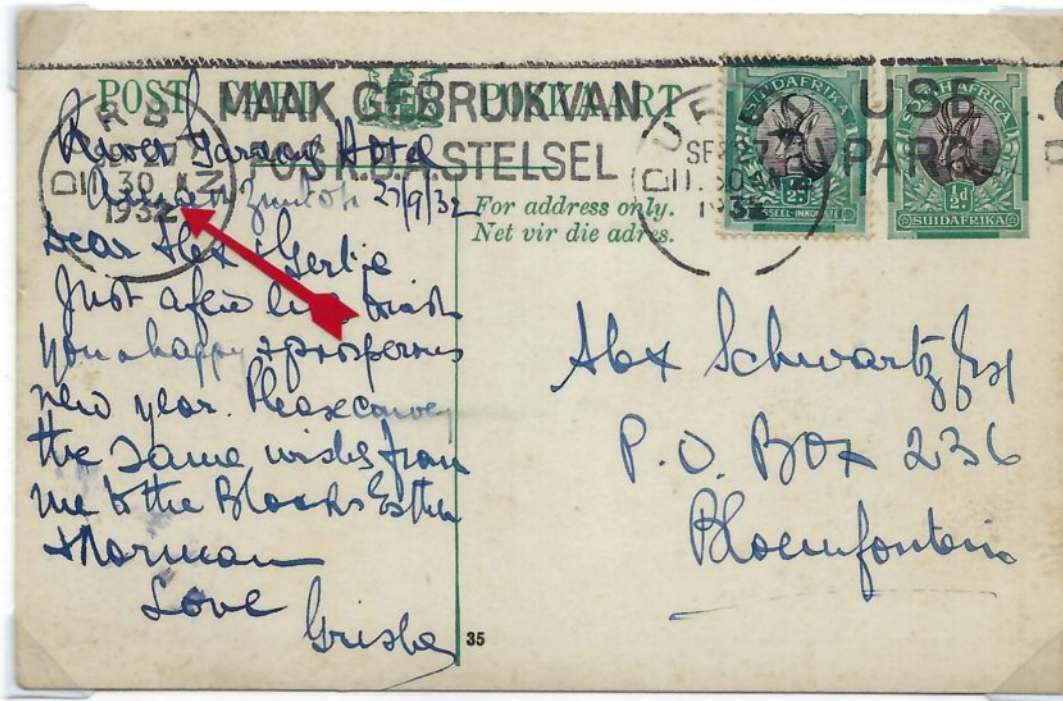 POST CARD POSKAART
MAAK GEBRUIK VAN
POS K.B.A. STELSEL
USE
PARCE
DURBAN
11.30 AM
1932
DURB
SEP 27
11.30 AM
1932
SUIDAFRIKA
½d.
POSSEËL-INKOMSTE
SOUTH AFRICA
½d
SUIDAFRIKA
For address only.
Net vir die adres.
Hotel
27/9/32
Dear Alex & Gertie
Just a few lines wish
you a happy & prosperous
new year. Please convey
the same wishes from
me to the Blochs Esther
& Norman
Love
Grisha
35
Alex Schwartz Esq
P.O. Box 236
Bloemfontein